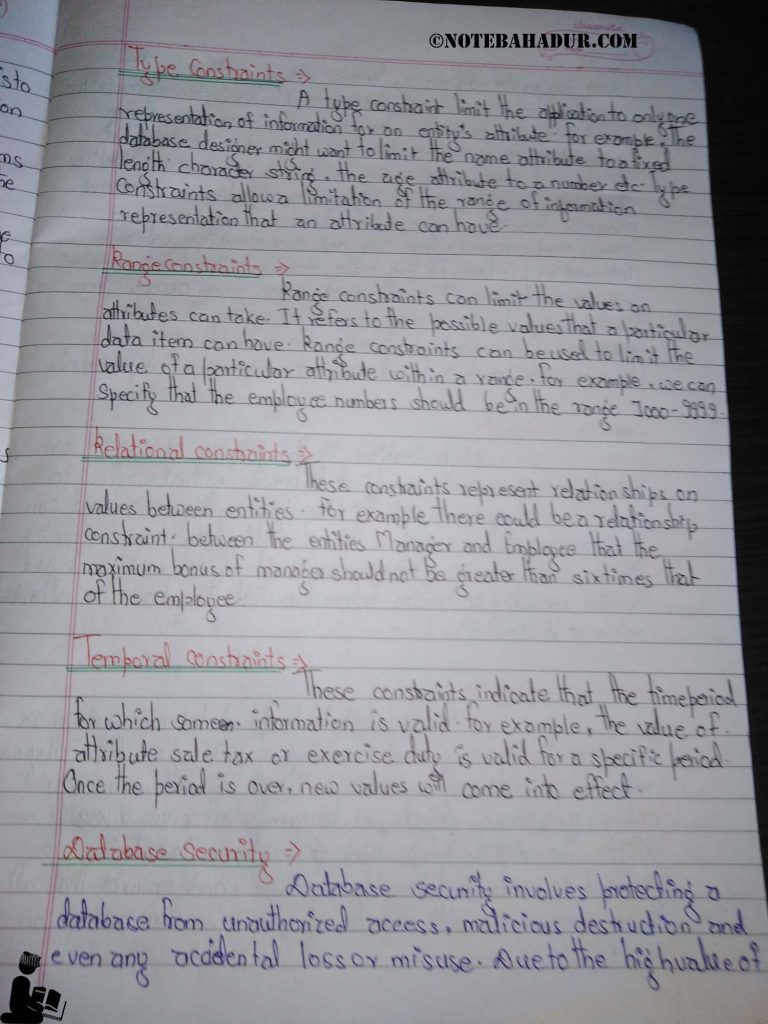 ©NOTEBAHADUR.COM
classmate
isto
on
ms
he
e
to
s
Type Constraints ⇒
A type constraint limit the application to only one
representation of information for an entity's attribute. for example, the
database designer might want to limit the name attribute to a fixed
length character string, the age attribute to a number etc. Type
Constraints allow a limitation of the range of information
representation that an attribute can have.
Range constraints ⇒
Range constraints can limit the values an
attributes can take. It refers to the possible values that a particular
data item can have. Range constraints can be used to limit the
value of a particular attribute within a range. for example, we can
specify that the employee numbers should be in the range 1000-9999.
Relational constraints ⇒
These constaints represent relationships on
values between entities. for example there could be a relationship
constraint. between the entities Manager and Employee that the
maximum bonus of manager should not be greater than six times that
of the employee.
Temporal constraints ⇒
These constaints indicate that the timeperiod
for which information is valid. for example, the value of
attribute sale tax or exercise duty is valid for a specific period.
Once the period is over, new values will come into effect.
Database Security ⇒
Database security involves protecting a
database from unauthorized access, malicious destruction and
even any accidental loss or misuse. Due to the high value of